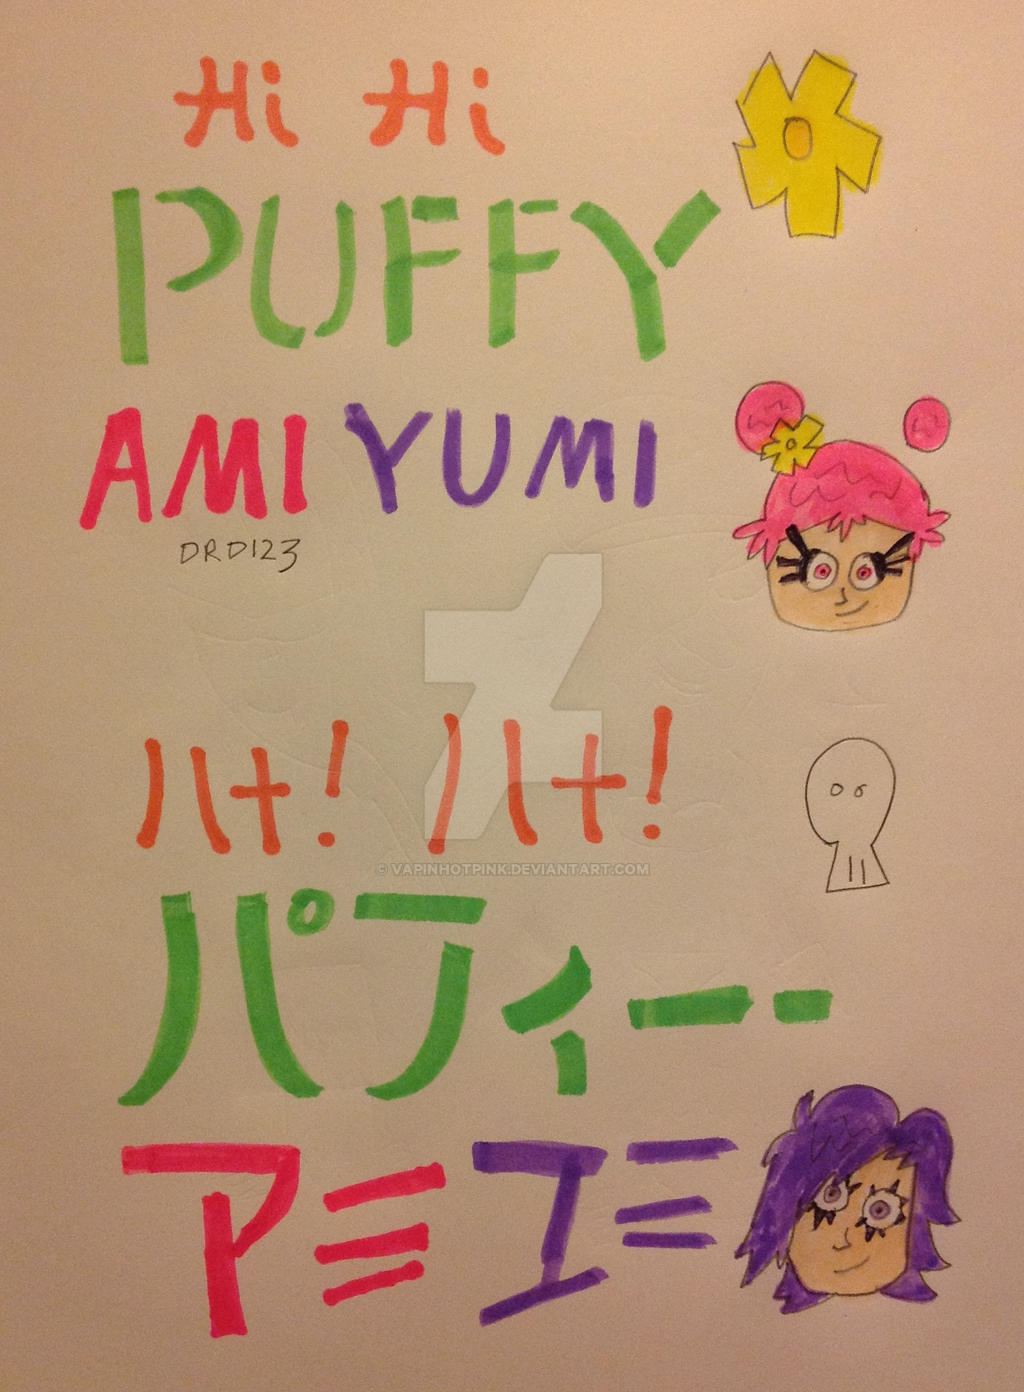 Hi Hi
PUFFY
AMI YUMI
DRD123
ハナ! ハナ!
© VAPINHOTPINK.DEVIANTART.COM
パティー-
アミ エミ